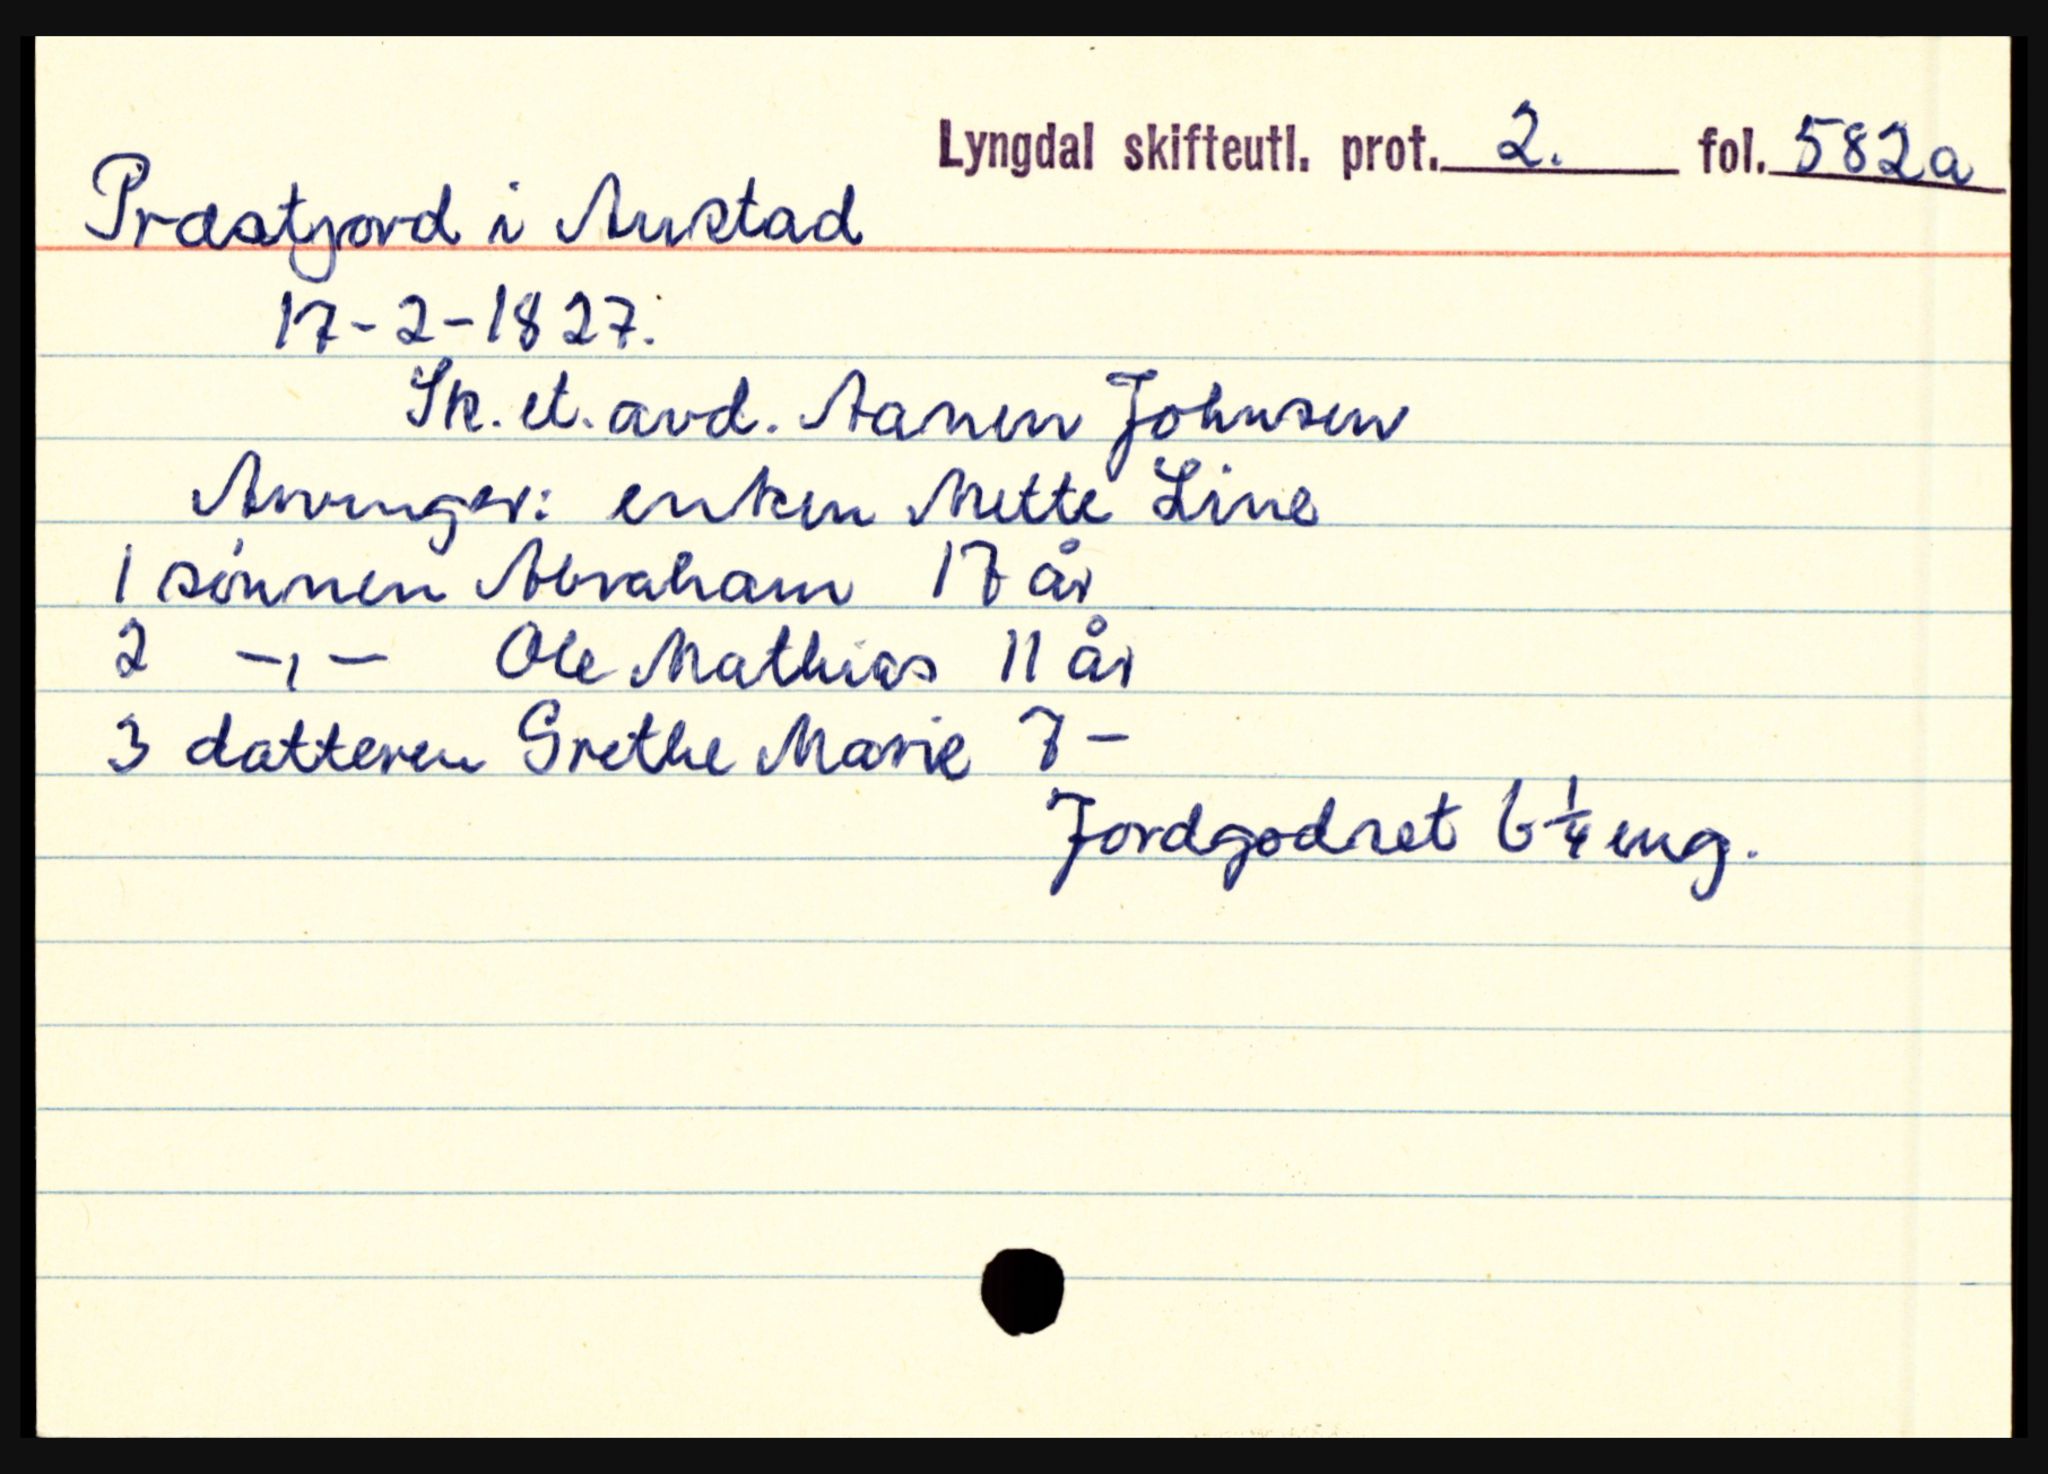 Lyngdal skifteutl. prot. 2. fol. 582a
Præstjord i Austad
17-2-1827.
Sk. et. avd. Aanen Johnsen
Arvinger: enken Mette Line
1 sønnen Abraham 17 år
2 -,- Ole Mathias 11 år
3 datteren Grethe Marie 7 -
Jordgodset 6 1/4 eng.